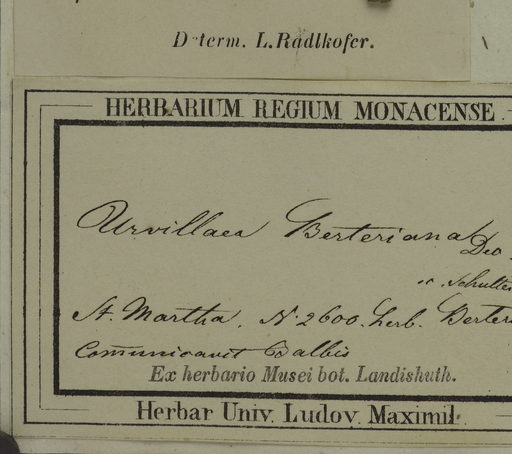 Determ. L. Radlkofer.
HERBARIUM REGIUM MONACENSE
Urvillaea Berteriana
St. Martha. N. 2600. herb. Berteri
Com̄unicavit Balbis
Ex herbario Musei bot. Landishuth.
Herbar Univ. Ludov. Maximil.